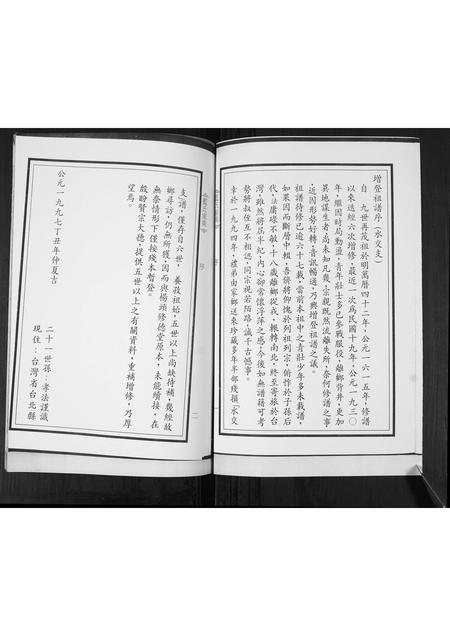 增登祖譜序（永交支）
自　九世再茂祖於明萬曆四十二年，公元一六一五年，修譜
以來迭經六次增修，最近一次為民國十九年，公元一九三〇
年，繼因時局動盪，青年壯士多已參戰服役，離鄉背井，更加
異地謀生者，尚未知凡幾，宗親既然流離失所，奈何修譜之事
，近因形勢好轉，音訊暢通，乃興增登祖譜之議。
祖譜待修已逾六十七載，當前本祖中之青壯少年多未載譜，
如果因而斷層中輟，吾儕將仰愧於列祖列宗，俯怍於子孫后
代，法庸碌不敏，十八歲離鄉從戎，輾轉南北，終至寄旅於台
灣，雖然將屆半紀，內心卻常懷浮萍之感，今後如無譜籍可考
勢將叔侄互不相認，同宗視若陌路，誠千古憾事。
幸於一九九四年，禮弟由家鄉送來珍藏多年半部殘損「永交
序
支」譜，僅存自六世，養孜祖始，五世以上尚缺待補，幾經故
鄉尋訪，仍無所獲，因而與楊頭修德堂原本，未能續接，在
無奈情形下僅按殘本暫登。
殷盼賢宗大德，提供五世以上之有關資料，重補增修，乃厚
望焉。
公元一九九七丁丑年仲夏吉
二十一世孫：孝法謹識
現住：台灣省台北縣